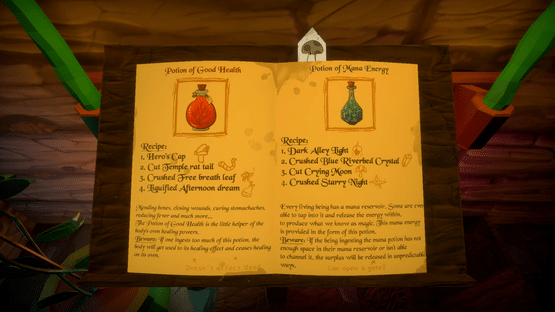 Potion of Good Health
Recipe:
1. Hero's Cap
2. Cut Temple rat tail
3. Crushed Free breath leaf
4. Liquified Afternoon dream
Mending bones, closing wounds, curing stomachaches,
reducing fever and much more...
The Potion of Good Health is the little helper of the
body's own healing powers.
Beware: If one ingests too much of this potion, the
body will get used to its healing effect and ceases healing
on its own.
Doesn't affect
Potion of Mana Energy
Recipe:
1. Dark Alley Light
2. Crushed Blue Riverbed Crystal
3. Cut Crying Moon
4. Crushed Starry Night
Every living being has a mana reservoir. Some are even
able to tap into it and release the energy within,
to produce what we know as magic. This mana energy
is provided in the form of this potion.
Beware: If the being ingesting the mana potion has not
enough space in their mana reservoir or isn't able
to channel it, the surplus will be released in unpredictable
ways.
Can open a gate?